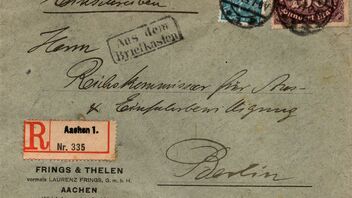 Einschreiben
Aus dem
Briefkasten
Herrn
Reichskommissar für Aus-
& Einfuhrbewilligung
R
Aachen 1.
Nr. 335
Berlin
FRINGS & THELEN
vormals LAURENZ FRINGS, G. m. b. H.
AACHEN